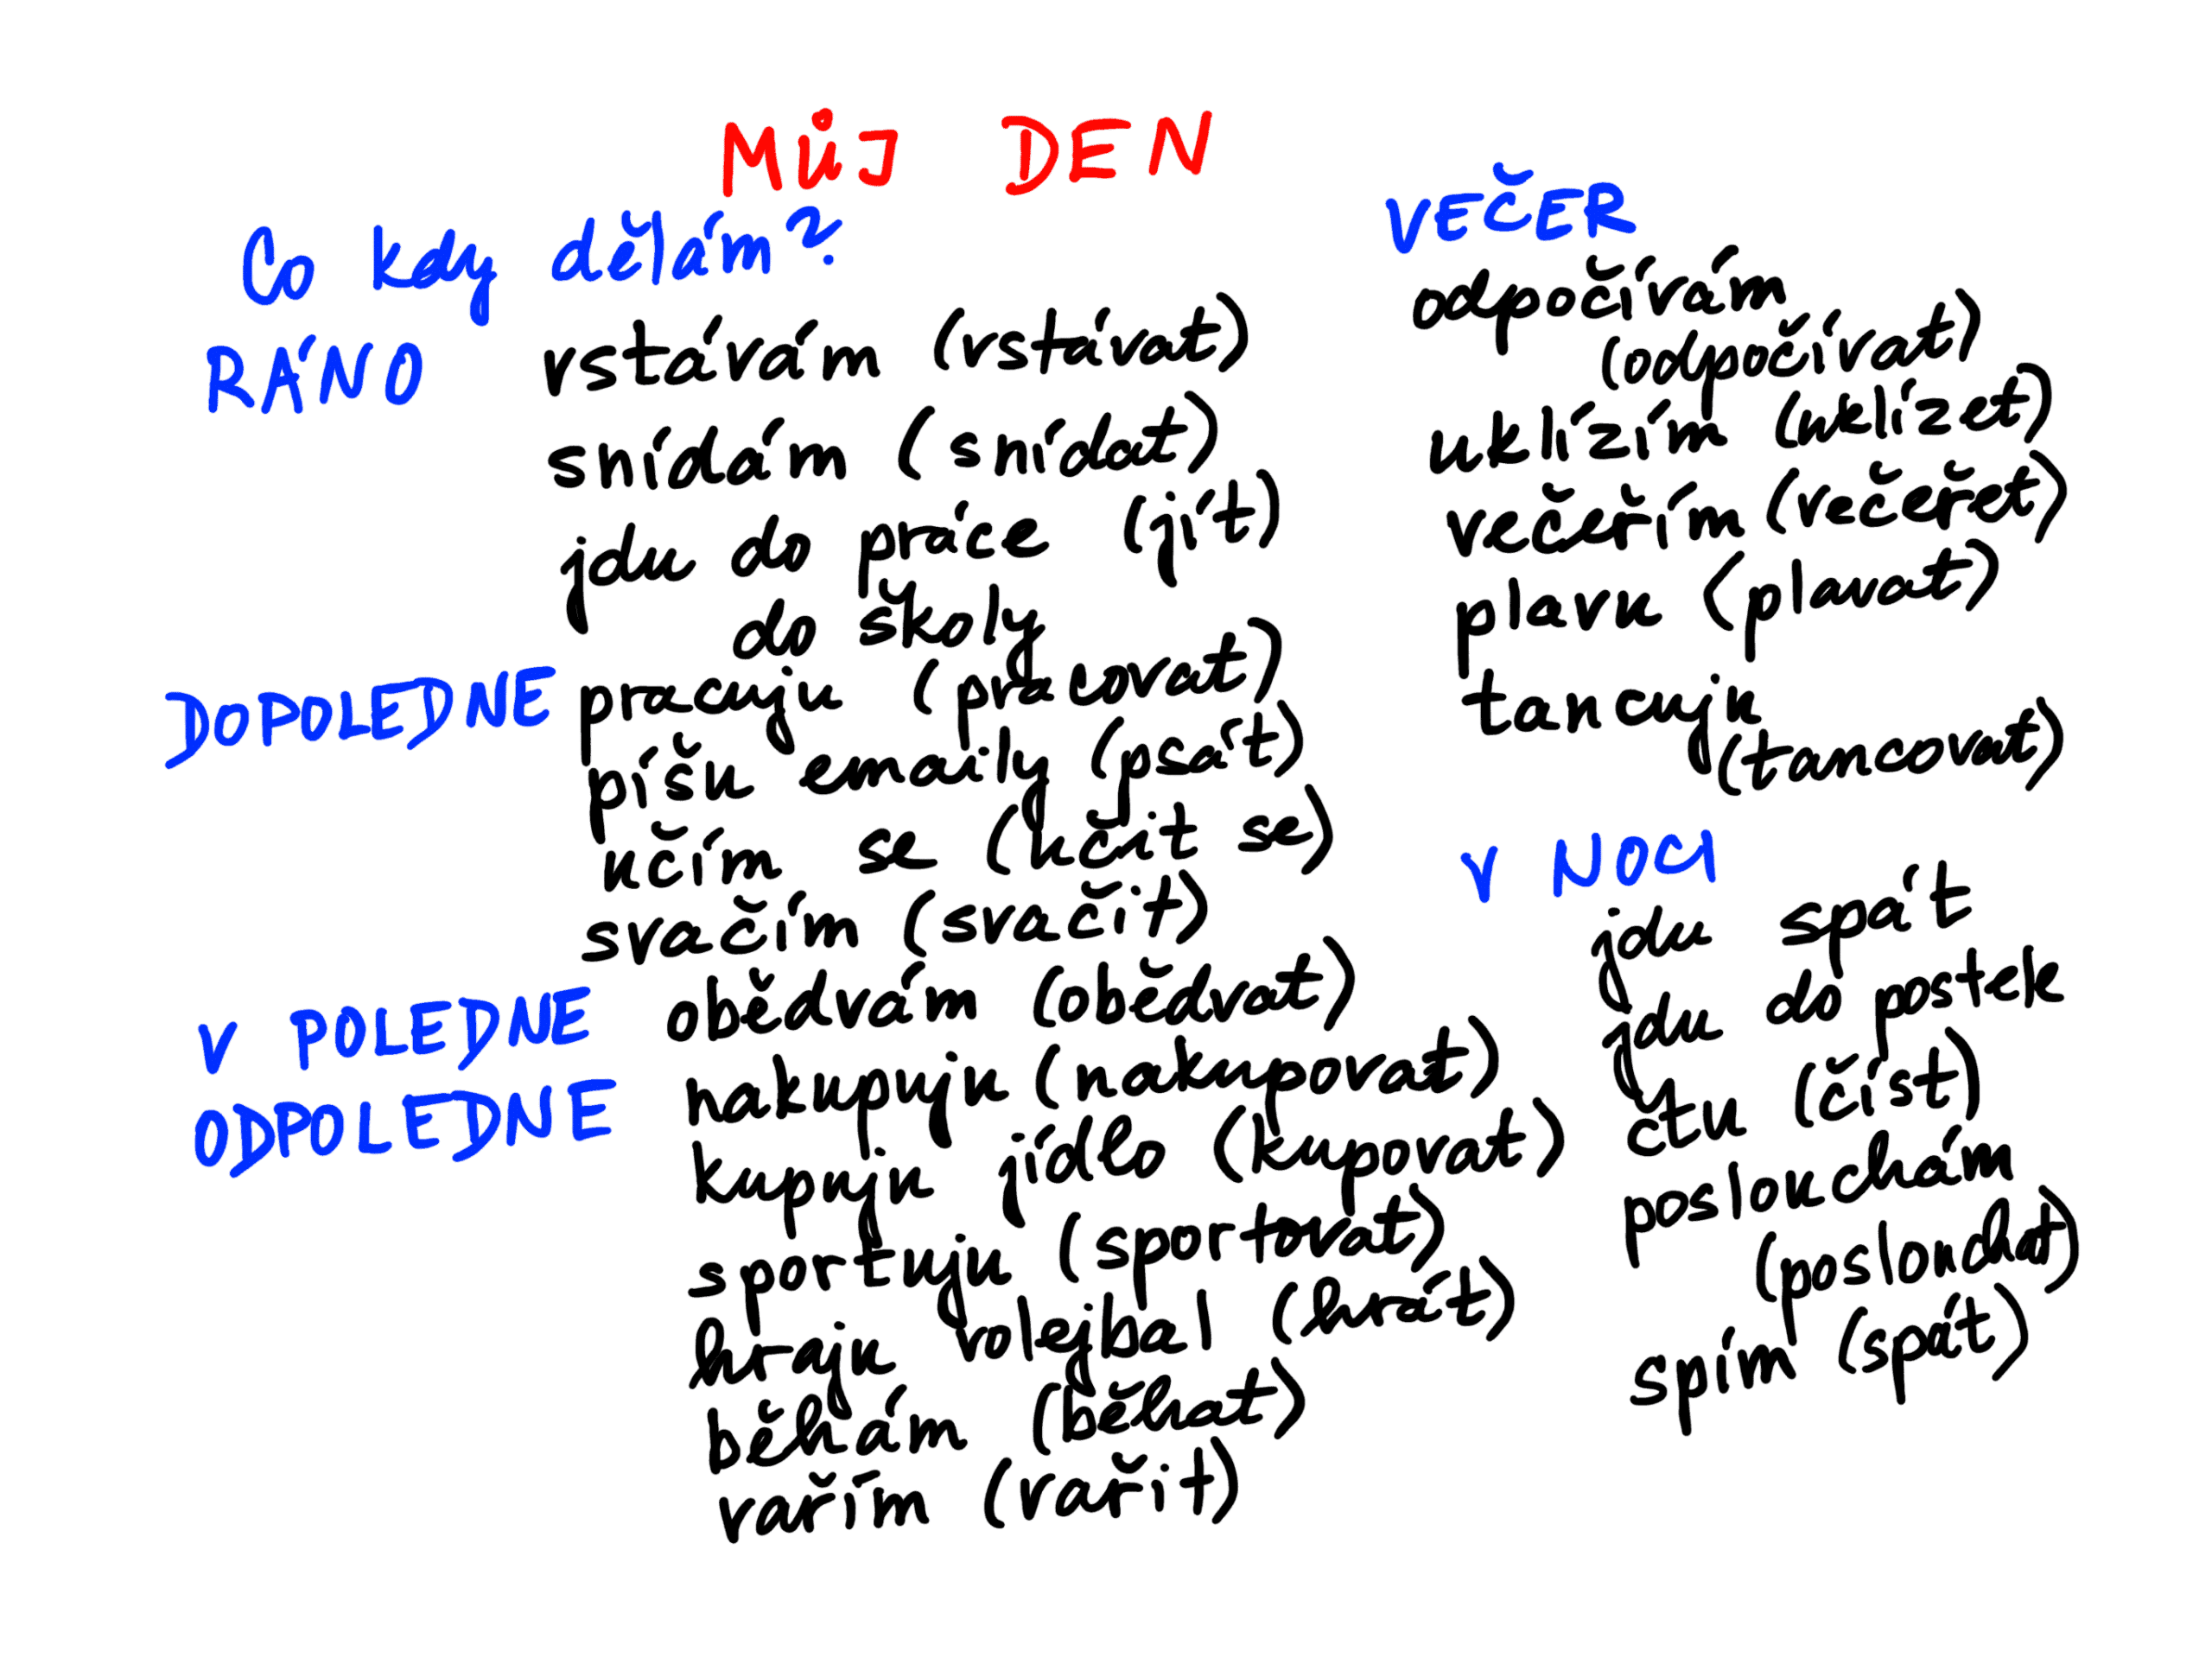 MŮJ DEN
Co kdy dělám?
RÁNO vstávám (vstávat)
snídám (snídat)
jdu do práce (jít)
do školy
DOPOLEDNE pracuju (pracovat)
píšu emaily (psát)
učím se (učit se)
svačím (svačit)
V POLEDNE obědvám (obědvat)
ODPOLEDNE nakupuju (nakupovat)
kupuju jídlo (kupovat)
sportuju (sportovat)
hraju volejbal (hrát)
běhám (běhat)
vařím (vařit)
VEČER
odpočívám
(odpočívat)
uklízím (uklízet)
večeřím (večeřet)
plavu (plavat)
tancuju
(tancovat)
V NOCI
jdu spát
jdu do postele
čtu (číst)
poslouchám
(poslouchat)
spím (spát)